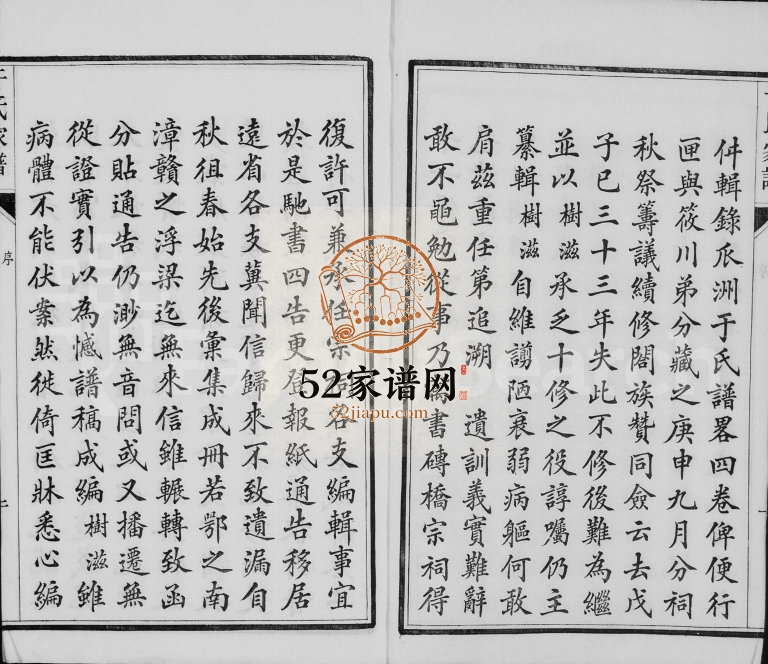 件輯錄爪洲于氏譜畧四卷俾便行
匣與莜川弟分藏之庚申九月分祠
秋祭籌議續修閤族贊同僉云去戊
子已三十三年失此不修後難為繼
並以樹滋承乏十修之役諄囑仍主
纂輯樹滋自維謭陋衰弱病軀何敢
肩茲重任第追溯 遺訓義實難辭
敢不黽勉從事乃 書磚橋宗祠得
復許可兼承任宗 各支編輯事宜
於是馳書四告更登報紙通告移居
遠省各支冀聞信歸來不致遺漏自
秋徂春始先後彙集成冊若鄂之南
漳贛之浮梁迄無來信雖輾轉致函
分貼通告仍渺無音問或又播遷無
從證實引以為憾譜稿成編樹滋雖
病體不能伏案然徙倚匡牀悉心編
于氏家譜
序
52家谱网
52jiapu.com